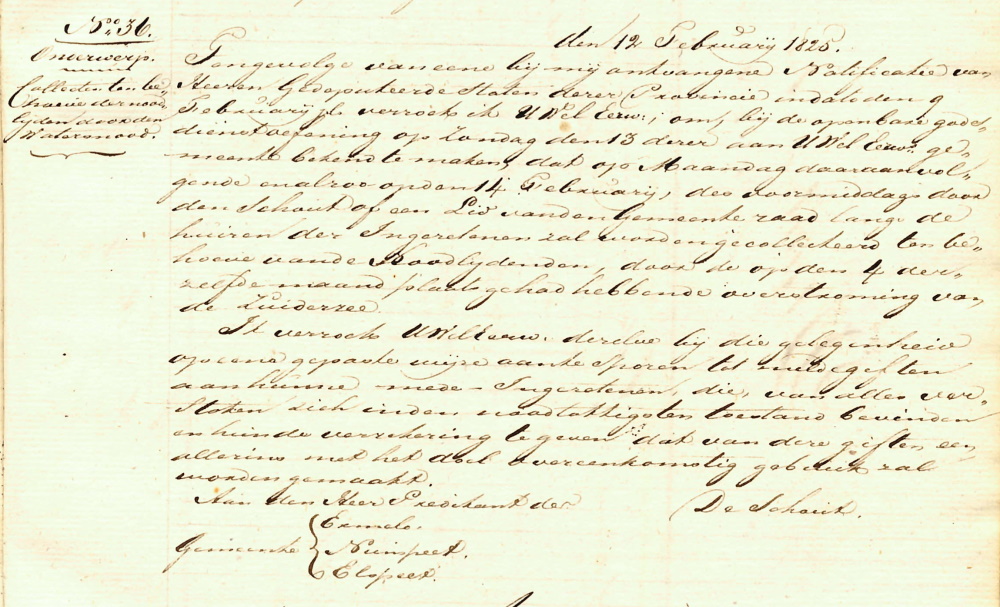 Noo 36.
Onderwerp.
Collecten ten be„
hoeve der nood„
lijden door den
Watersnood.
den 12 Februarij 1825.
Tengevolge van eene bij mij ontvangene Notificatie van
Heeren Gedeputeerde Staten dezer Provincie in dato den 9
Februarij jl. verzoek ik UWel Eerw:, om, bij de openbare gods„
dienstoefening op Zondag den 13 dezer aan UWel Eerws. ge„
meente bekend te maken, dat op Maandag daaraanvol„
gende en alzoo op den 14 Februarij, des voormiddags door
den Schout of een Lid van den Gemeente raad langs de
huizen der Ingezetenen zal worden gecollecteerd ten be„
hoeve van de Noodlydenden, door de op den 4 der„
zelfde maand plaats gehad hebbende overstrooming van
de Zuiderzee.
Ik verzoek UWelEerw. derzelve bij die gelegenheid
op eene gepaste wijze aan te sporen tot milde giften
aan hunne mede-Ingezetenen, die, van alles ver„
stoken zich in den noodlottigsten toestand bevinden
en hun de verzekering te geven dat van deze giften een
allezins met het doel overeenkomstig gebruik zal
worden gemaakt.
Aan den Heer Predikant der
De Schout.
Gemeente
Ermelo.
Nunspeet.
Elspeet.